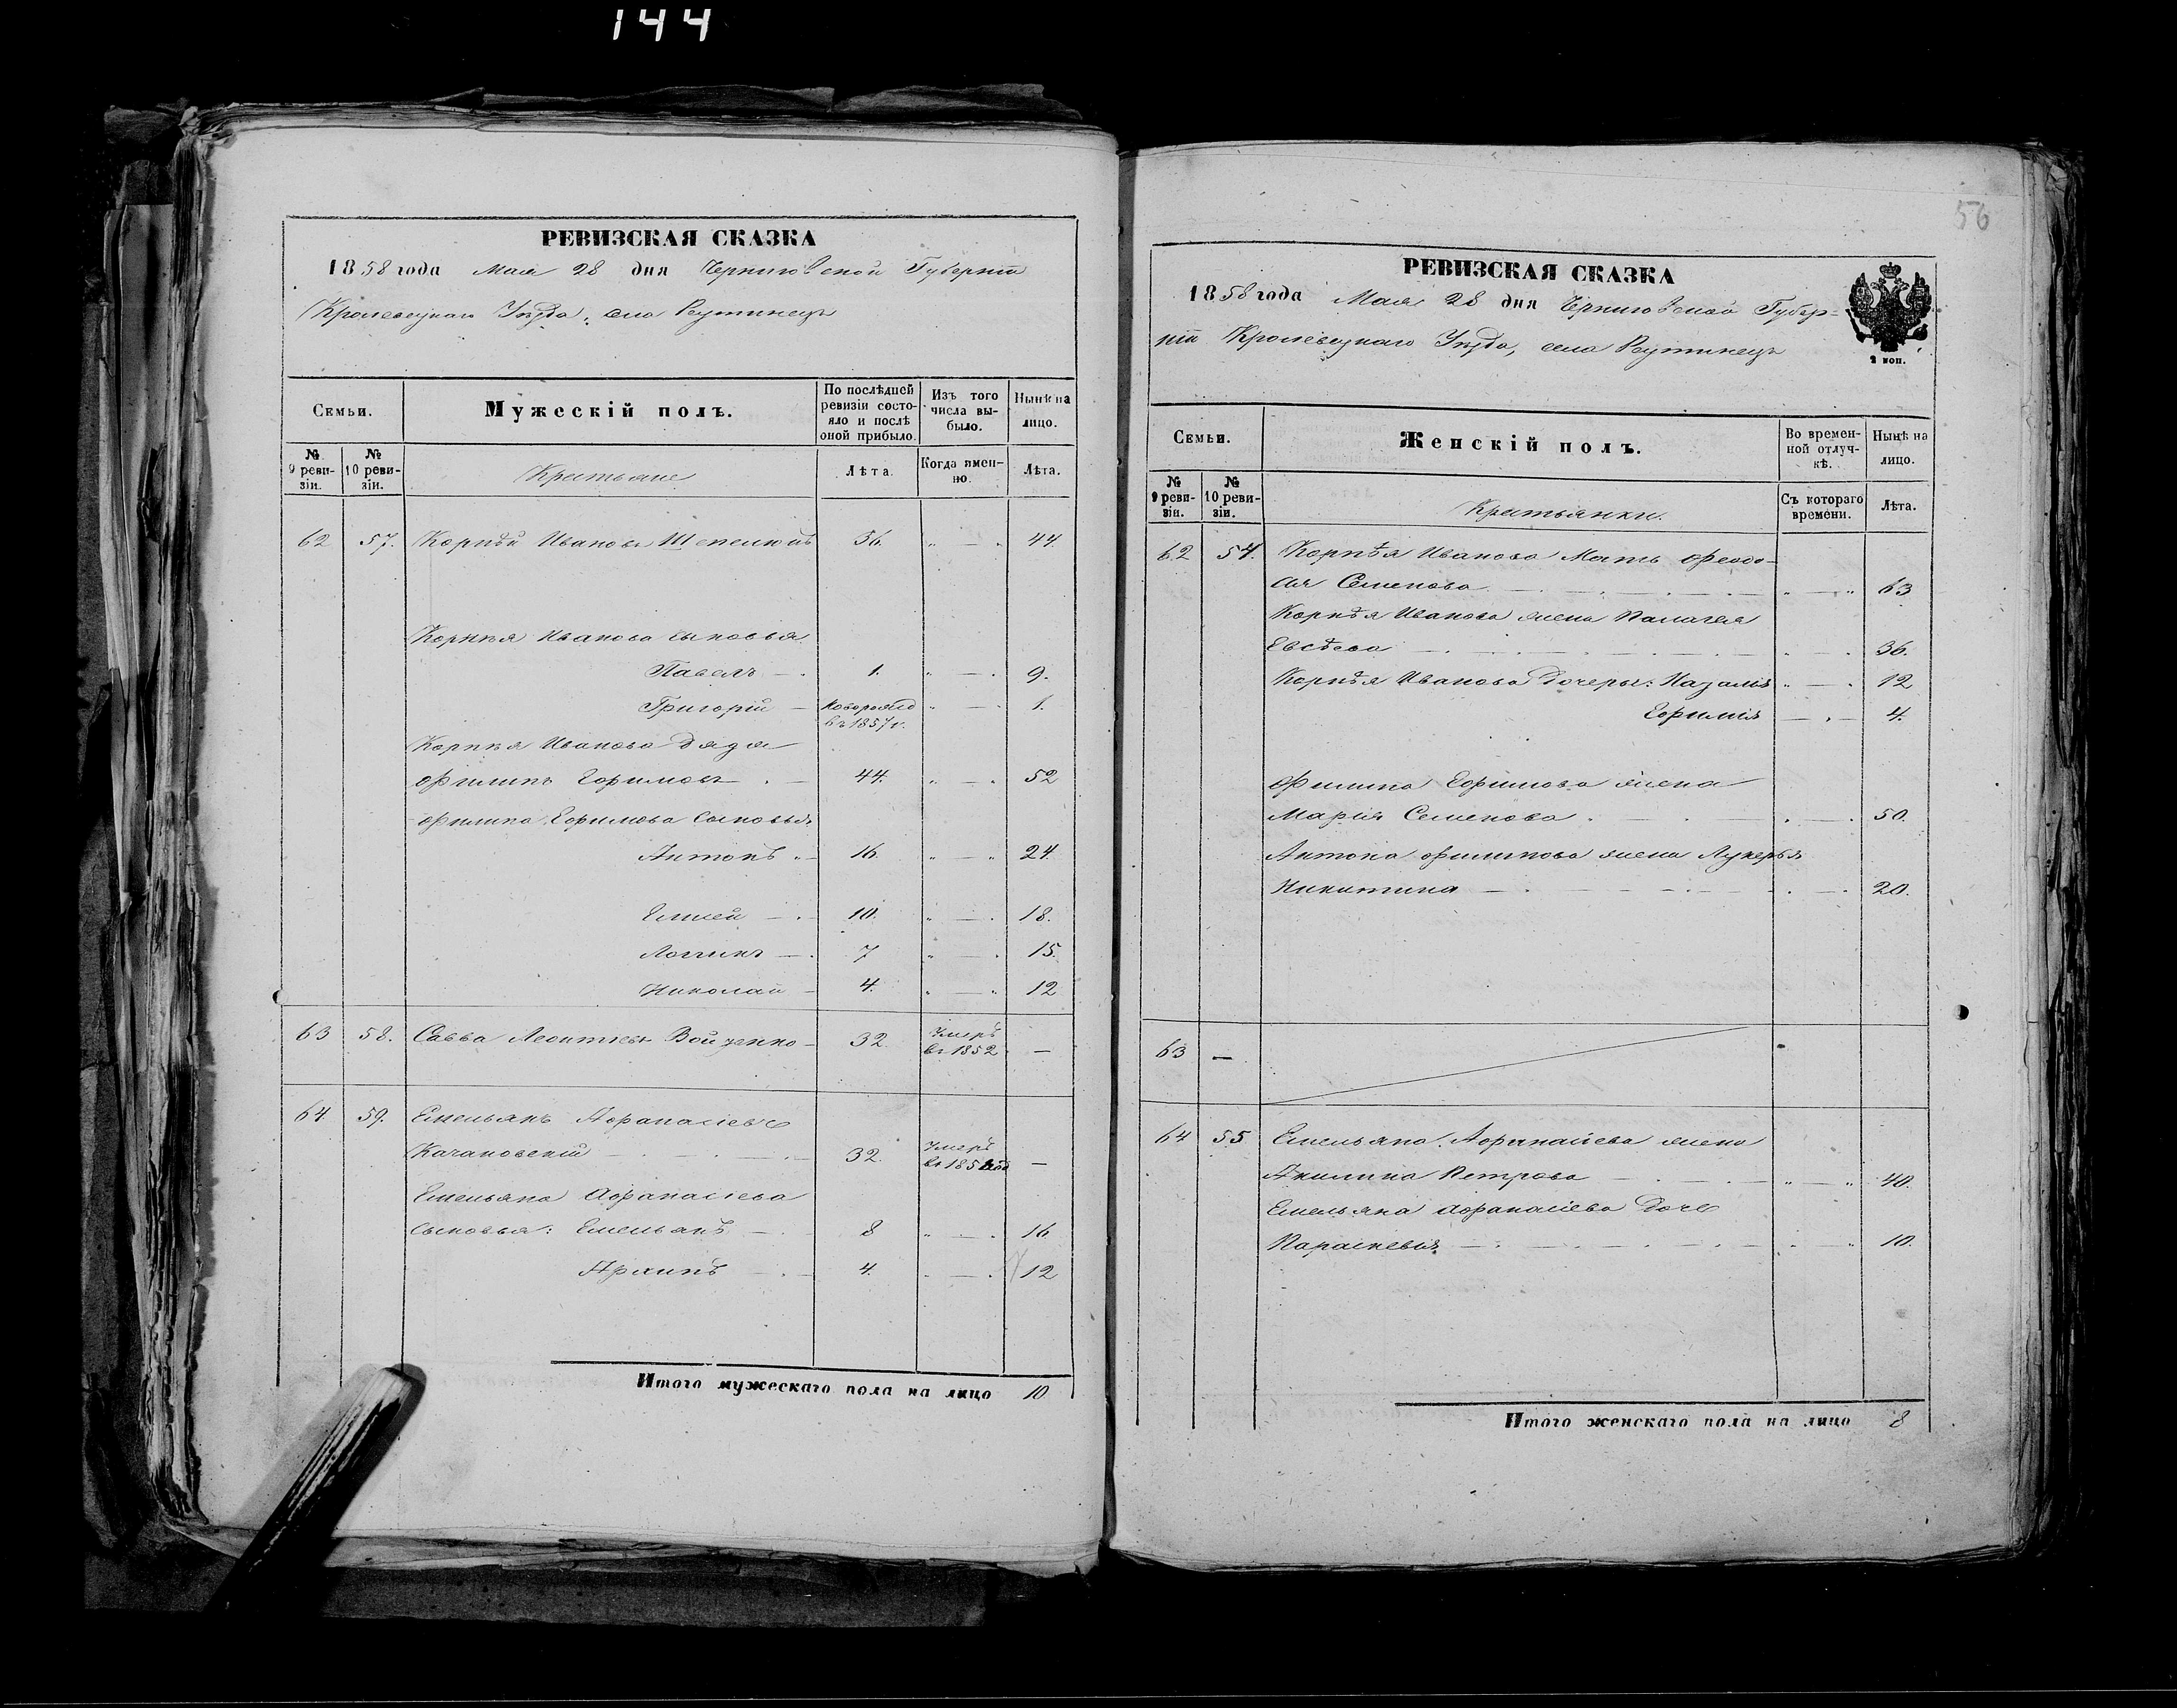 144
РЕВИЗСКАЯ СКАЗКА
1858 года Мая 28 дня Черниговской Губерніи
Кролевецкаго Уѣзда, села Реутинецъ
Семьи.
Мужескій полъ.
По послѣдней ревизіи состояло и послѣ оной прибыло.
Изъ того числа выбыло.
Нынѣ на лицо.
№ 9 ревизіи.
№ 10 ревизіи.
Крестьяне
Лѣта.
Когда именно.
Лѣта.
62 57. Корнѣй Ивановъ 36. " — . 44.
Корнѣя Иванова сыновья
Павелъ — . 1. " — . 9.
Григорій — новорожд " — . 1.
въ 1857 г.
Корнѣя Иванова дядя
Филипъ Ефимовъ — . — 44. " — . 52
Филипа Ефимова сыновья
Антонъ " — 16. " — " 24.
Елисей — . — 10. " — . 18.
Логгинъ — . 7 " — . 15.
Николай — 4. " — " 12
63 58. Савва Леонтьевъ Войченко — 32. Умеръ —
въ 1852
64 59. Емельянъ Афанасіевъ
Качановскій — . — . — 32. Умеръ —
въ 185
Емельяна Афанасіева
сыновья: Емельянъ — . 8 " — . 16
Архипъ — . — 4. " — . 12
Итого мужескаго пола на лицо 10
56
РЕВИЗСКАЯ СКАЗКА
1858 года Мая 28 дня Черниговской Губер=
ніи Кролевецкаго Уѣзда, села Реутинецъ
2 коп.
Семьи.
Женскій полъ.
Во временной отлучкѣ.
Нынѣ на лицо.
№ 9 ревизіи.
№ 10 ревизіи.
Крестьянки.
Съ котораго времени.
Лѣта.
62 54. Корнѣя Иванова Мать Феодо-
сія Семенова — . — . — " — " 63
Корнѣя Иванова жена Палагея
Евсѣева — . — . — . — " — . 36.
Корнѣя Иванова дочери: Наталія " — . 12
Ефимія — . — 4.
Филипа Ефимова жена
Марія Семенова . — . . — . 50.
Антона Филипова жена Лукерья
Никитина — . — — . — . — . 20.
63 —
64 55 Емельяна Афанасіева жена
Акилина Петрова — . — . — " — " 40.
Емельяна Афанасіева дочь
Параскевія — . — . — . — . " " 10.
Итого женскаго пола на лицо 8